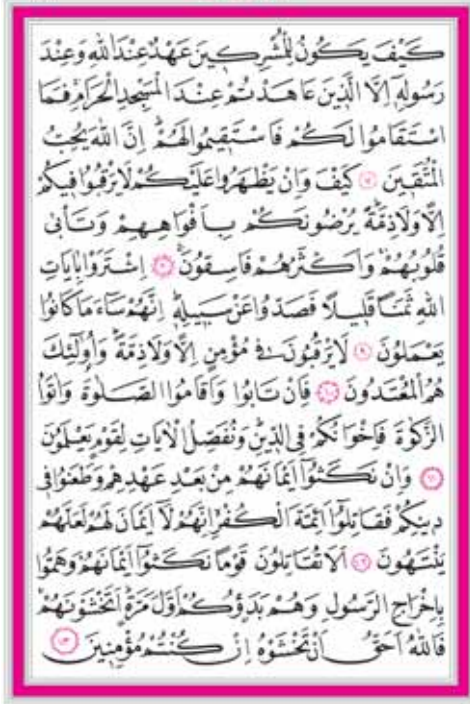 كَيْفَ يَكُونُ لِلْمُشْرِكِينَ عَهْدٌ عِنْدَ اللّٰهِ وَعِنْدَ
رَسُولِهِٓ اِلَّا الَّذِينَ عَاهَدْتُمْ عِنْدَ الْمَسْجِدِ الْحَرَامِۚ فَمَا
اسْتَقَامُوا لَكُمْ فَاسْتَقِيمُوا لَهُمْۜ اِنَّ اللّٰهَ يُحِبُّ
الْمُتَّقِينَ ﴿٧﴾ كَيْفَ وَاِنْ يَظْهَرُوا عَلَيْكُمْ لَا يَرْقُبُوا فِيكُمْ
اِلًّا وَلَا ذِمَّةًۜ يُرْضُونَكُمْ بِاَفْوَاهِهِمْ وَتَأْبٰى
قُلُوبُهُمْۚ وَاَكْثَرُهُمْ فَاسِقُونَۚ ﴿٨﴾ اِشْتَرَوْا بِاٰيَاتِ
اللّٰهِ ثَمَنًا قَلِيلًا فَصَدُّوا عَنْ سَبِيلِهِۜ اِنَّهُمْ سَٓاءَ مَا كَانُوا
يَعْمَلُونَ ﴿٩﴾ لَا يَرْقُبُونَ فِي مُؤْمِنٍ اِلًّا وَلَا ذِمَّةًۜ وَاُو۬لٰٓئِكَ
هُمُ الْمُعْتَدُونَ ﴿١٠﴾ فَاِنْ تَابُوا وَاَقَامُوا الصَّلٰوةَ وَاٰتَوُا
الزَّكٰوةَ فَاِخْوَانُكُمْ فِي الدِّينِۜ وَنُفَصِّلُ الْاٰيَاتِ لِقَوْمٍ يَعْلَمُونَ
﴿١١﴾ وَاِنْ نَكَثُٓوا اَيْمَانَهُمْ مِنْ بَعْدِ عَهْدِهِمْ وَطَعَنُوا فِي
دِينِكُمْ فَقَاتِلُٓوا اَئِمَّةَ الْكُفْرِۙ اِنَّهُمْ لَٓا اَيْمَانَ لَهُمْ لَعَلَّهُمْ
يَنْتَهُونَ ﴿١٢﴾ اَلَا تُقَاتِلُونَ قَوْمًا نَكَثُٓوا اَيْمَانَهُمْ وَهَمُّوا
بِاِخْرَاجِ الرَّسُولِ وَهُمْ بَدَؤُ۫كُمْ اَوَّلَ مَرَّةٍۜ اَتَخْشَوْنَهُمْۚ
فَاللّٰهُ اَحَقُّ اَنْ تَخْشَوْهُ اِنْ كُنْتُمْ مُؤْمِنِينَ ﴿١٣﴾